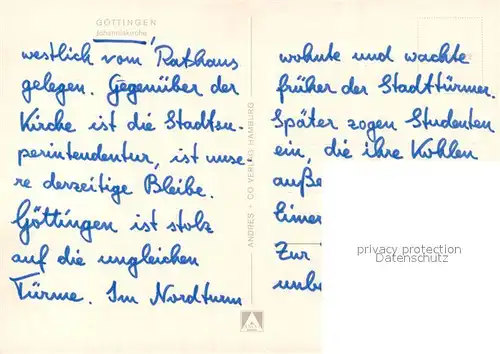 GÖTTINGEN
Johanniskirche,
westlich vom Rathaus
gelegen. Gegenüber der
Kirche ist die Stadtsu-
perintendentur, ist unse-
re derzeitige Bleibe.
Göttingen ist stolz
auf die ungleichen
Türme. Im Nordturm
ANDRES + CO VERLAG HAMBURG
wohnte und wachte
früher der Stadttürmer.
Später zogen Studenten
ein, die ihre Kohlen
auße
limer
Zur
unb
privacy protection
Datenschutz